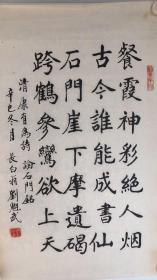 餐霞神彩絕人烟
古今誰能成書仙
石門崖下摩遺碣
跨鶴參鸞欲上天
清康有為詩論石門銘
辛巳冬月長白前劉